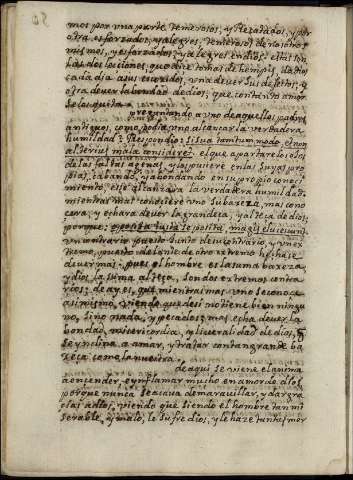 mos por una parte temerosos, y recatados, y por
otra esforzados, y alegres, temerosos de nosotros
mismos, y esforzados, y alegres en dios. estas son
las dos leciones, que dize tomas de kempis, da dios
cada dia a sus escogidos, una de ver sus defectos, y
otra de ver la bondad de dios, que con tanto amor
se los quita.
preguntando a uno de aquellos padres
antiguos, como podia uno alcançar la verdadera
humildad? Respondio: Si sua tantummodo, et non
alterius mala consideret. el que apartare los ojos
de las faltas agenas, y las pusiere en las suyas pro
pias, cabando, y ahondando en su propio conoci
miento, esse alcançara la verdadera humildad.
mientras mas considere uno su baxeza, mas cono
cera, y echara de ver la grandeza, y alteça de dios.
porque: opposita iuxta se posita, magis elucescunt.
un contrario puesto junto de su contrario, y un ex
tremo, puesto delante de otro extremo se hace
de ver mas: pues el hombre es la suma baxeza,
y dios la suma alteça, son dos extremos contra
rios; de ay es, que mientras mas uno se conoce
a si mismo, viendo que de si no tiene bien ningu
no, sino nada, y pecados: mas echa de ver la
bondad, misericordia, y liberalidad de dios, q
se ynclina a amar, y tratar con tan grande ba
xeça, como la nuestra.
de aqui se viene el anima
a encender, e ynflamar mucho en amor de dios
porque nunca se acava de maravillar, y dar gra
cias a dios, viendo que siendo el hombre tan mi
serable, y malo, le sufre dios, y le haze tantas mer